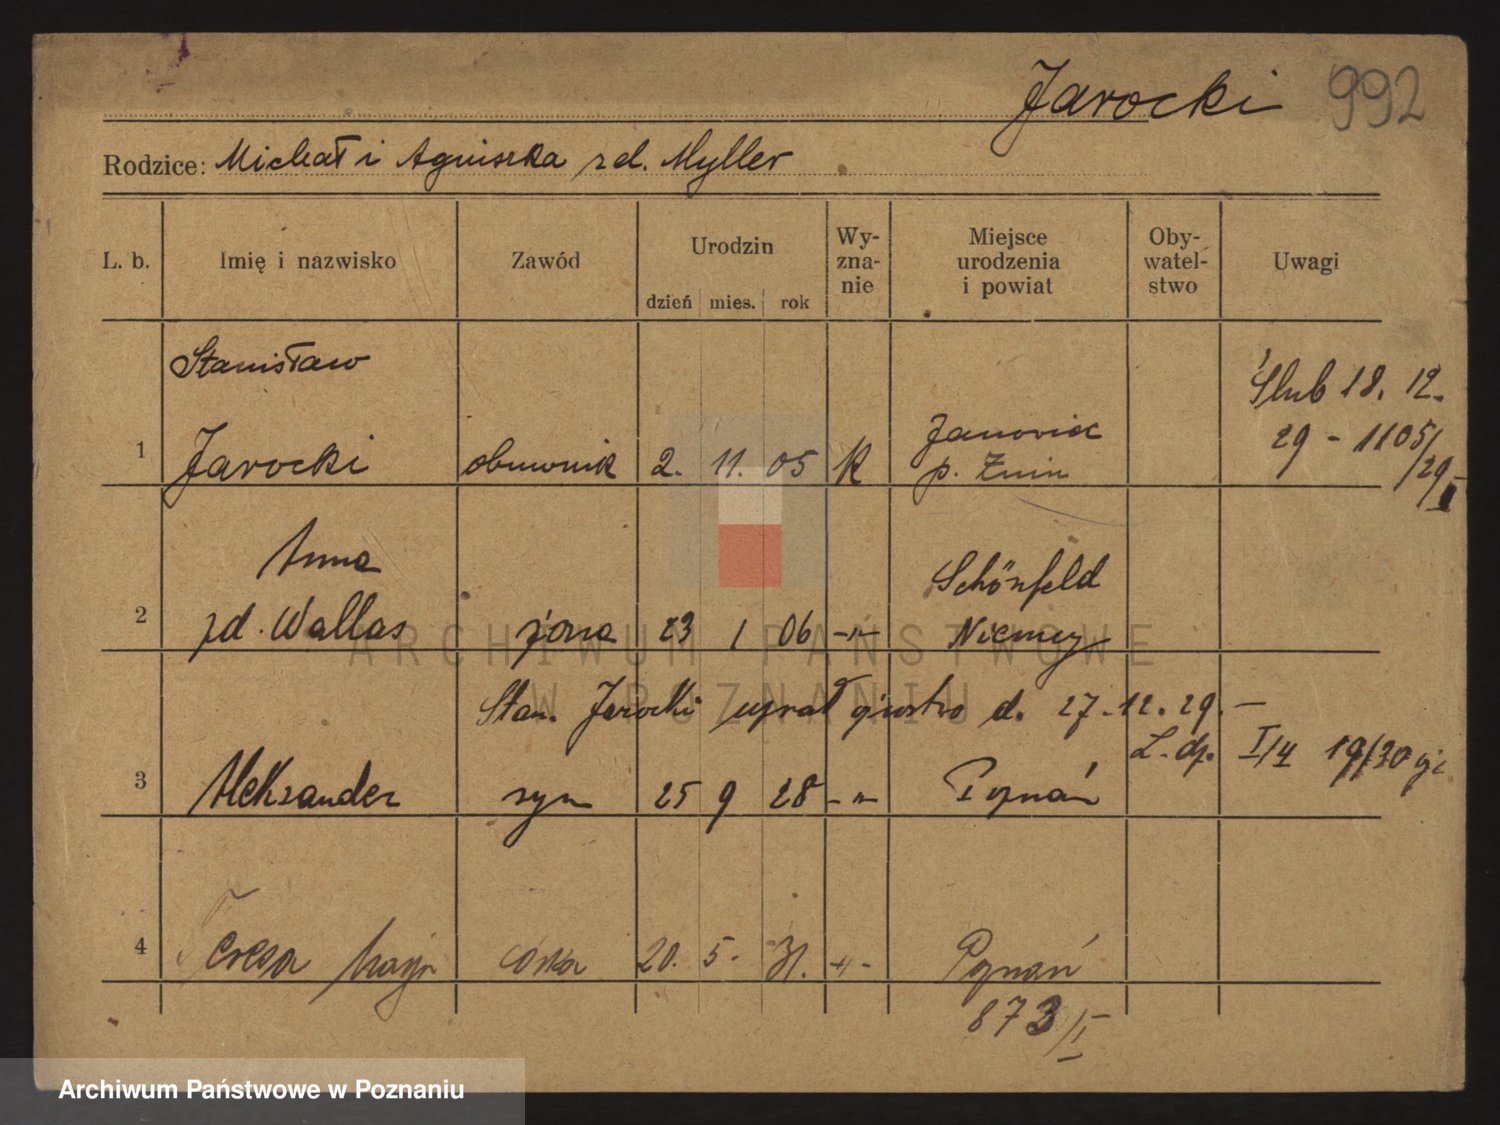 Jarocki 992
Rodzice: Michał i Agniszka zd. Myller
L. b. Imię i nazwisko Zawód Urodzin dzień mies. rok Wy-zna-nie Miejsce urodzenia i powiat Oby-watel-stwo Uwagi
Stanisław
1 Jarocki obuwnik 2. 11. 05 K Janowiec p. Żnin Ślub 18. 12.
29 - 1105/
/29
Anna Schönfeld
2 zd. Wallas żona 23 1 06 -"- Niemcy
Stan. Jarocki d. 27.12.29. -
L. dp. I/4 19/30
3 Aleksander syn 25 9 28 -"- Poznań
4 Teresa córka 20. 5. 31. -"- Poznań
873/I
ARCHIWUM PAŃSTWOWE
W POZNANIU
Archiwum Państwowe w Poznaniu